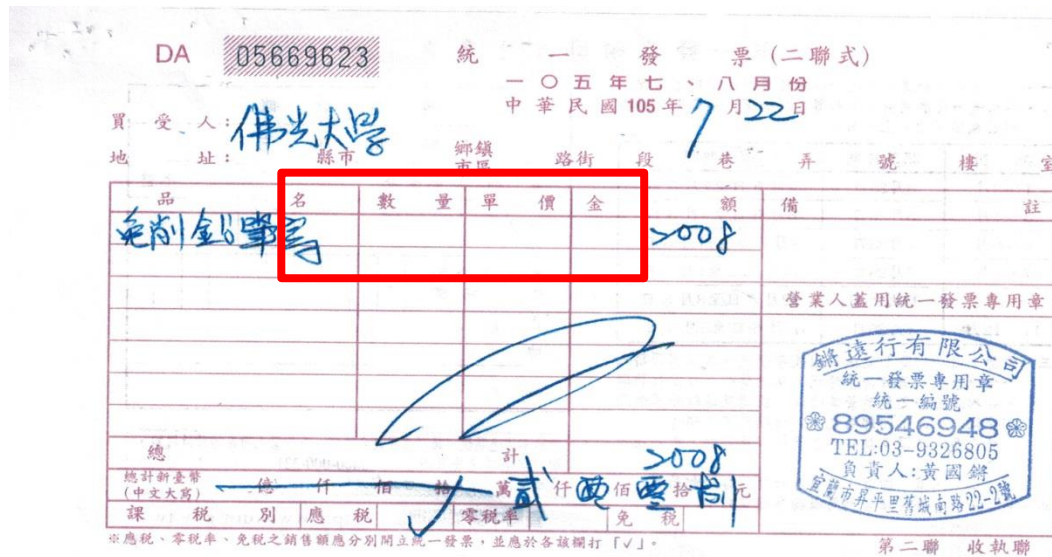 DA 05669623 統一發票(二聯式)
一○五年七、八月份
中華民國105年7月22日
買受人:佛光大學
地址: 縣市 鄉鎮市區 路街 段 巷 弄 號 樓 室
品名 數量 單價 金額 備註
免削鉛筆等 2008
營業人蓋用統一發票專用章
鏘遠行有限公司
統一發票專用章
統一編號
89546948
TEL:03-9326805
負責人:黃國鏘
宜蘭市昇平里舊城南路22-2號
總計 2008
總計新臺幣(中文大寫) 億 仟 佰 拾 萬 貳 仟 零 佰 零 拾 捌 元
課稅別 應稅 ✓ 零稅率 免稅
※應稅、零稅率、免稅之銷售額應分別開立統一發票,並應於各該欄打「✓」。
第二聯 收執聯